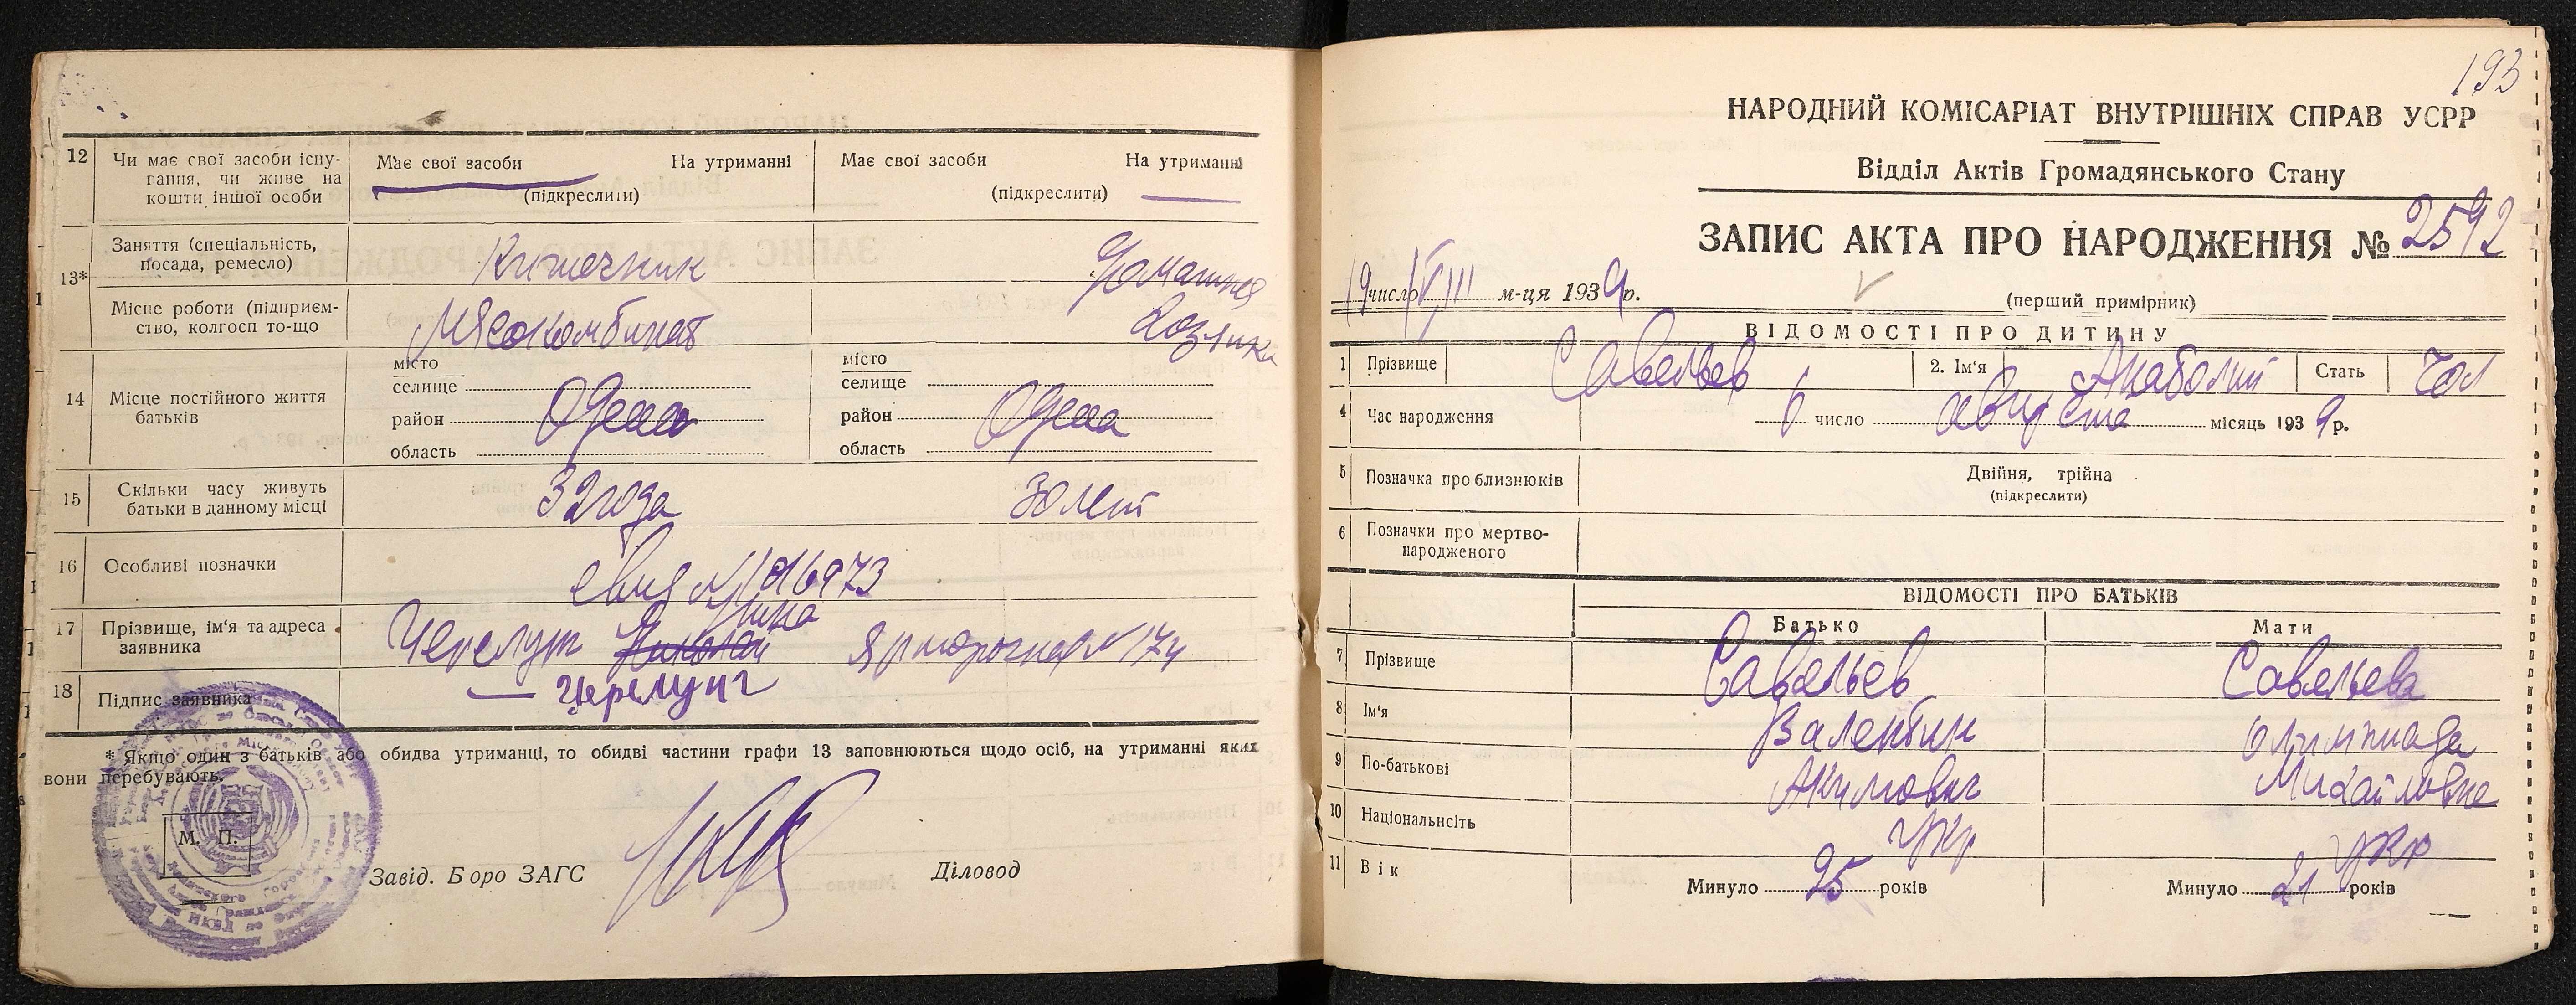 12 Чи має свої засоби існу-
гання, чи живе на
кошти іншої особи
Має свої засоби На утриманні
(підкреслити)
Має свої засоби На утриманні
(підкреслити)
13* Заняття (спеціальність,
посада, ремесло)
Кишечник
Домашняя
Місце роботи (підприєм-
ство, колгосп то-що
Мясокомбинат
хозяйка
14 Місце постійного життя
батьків
місто
селище
район Одесса
область
місто
селище
район Одесса
область
15 Скільки часу живуть
батьки в данному місці
32 года
30 лет
16 Особливі позначки
17 Прізвище, ім'я та адреса
заявника
Нина
Ярмарочная № 174
18 Підпис заявника
* Якщо один з батьків або обидва утриманці, то обидві частини графи 13 заповнюються щодо осіб, на утриманні яких
вони перебувають.
М. П.
Завід. Боро ЗАГС
Діловод
193
НАРОДНИЙ КОМІСАРІАТ ВНУТРІШНІХ СПРАВ УСРР
Відділ Актів Громадянського Стану
ЗАПИС АКТА ПРО НАРОДЖЕННЯ № 2592
19 число VIII м-ця 1939 р.
(перший примірник)
ВІДОМОСТІ ПРО ДИТИНУ
1 Прізвище Савельев 2. Ім'я Анатолий Стать Чол
4 Час народження 6 число августа місяць 1939 р.
5 Позначка про близнюків
Двійня, трійна
(підкреслити)
6 Позначки про мертво-
народженого
ВІДОМОСТІ ПРО БАТЬКІВ
Батько Мати
7 Прізвище Савельев Савельева
8 Ім'я Валентин Олимпиада
9 По-батькові Акимович Михайловна
10 Національність Укр Укр
11 Вік Минуло 25 років Минуло 21 років